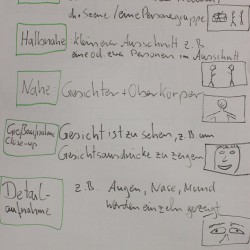 d. Szene / eine Personengruppe
Halbnahe
kleinerer Ausschnitt z.B.
ein od. zwei Personen im Ausschnitt
Nahe
Gesichter + Oberkörper
Großaufnahme
Close-up
Gesicht ist zu sehen, z.B. um
Gesichtsausdrücke zu zeigen
Detail-
aufnahme
z.B. Augen, Nase, Mund
werden einzeln gezeigt